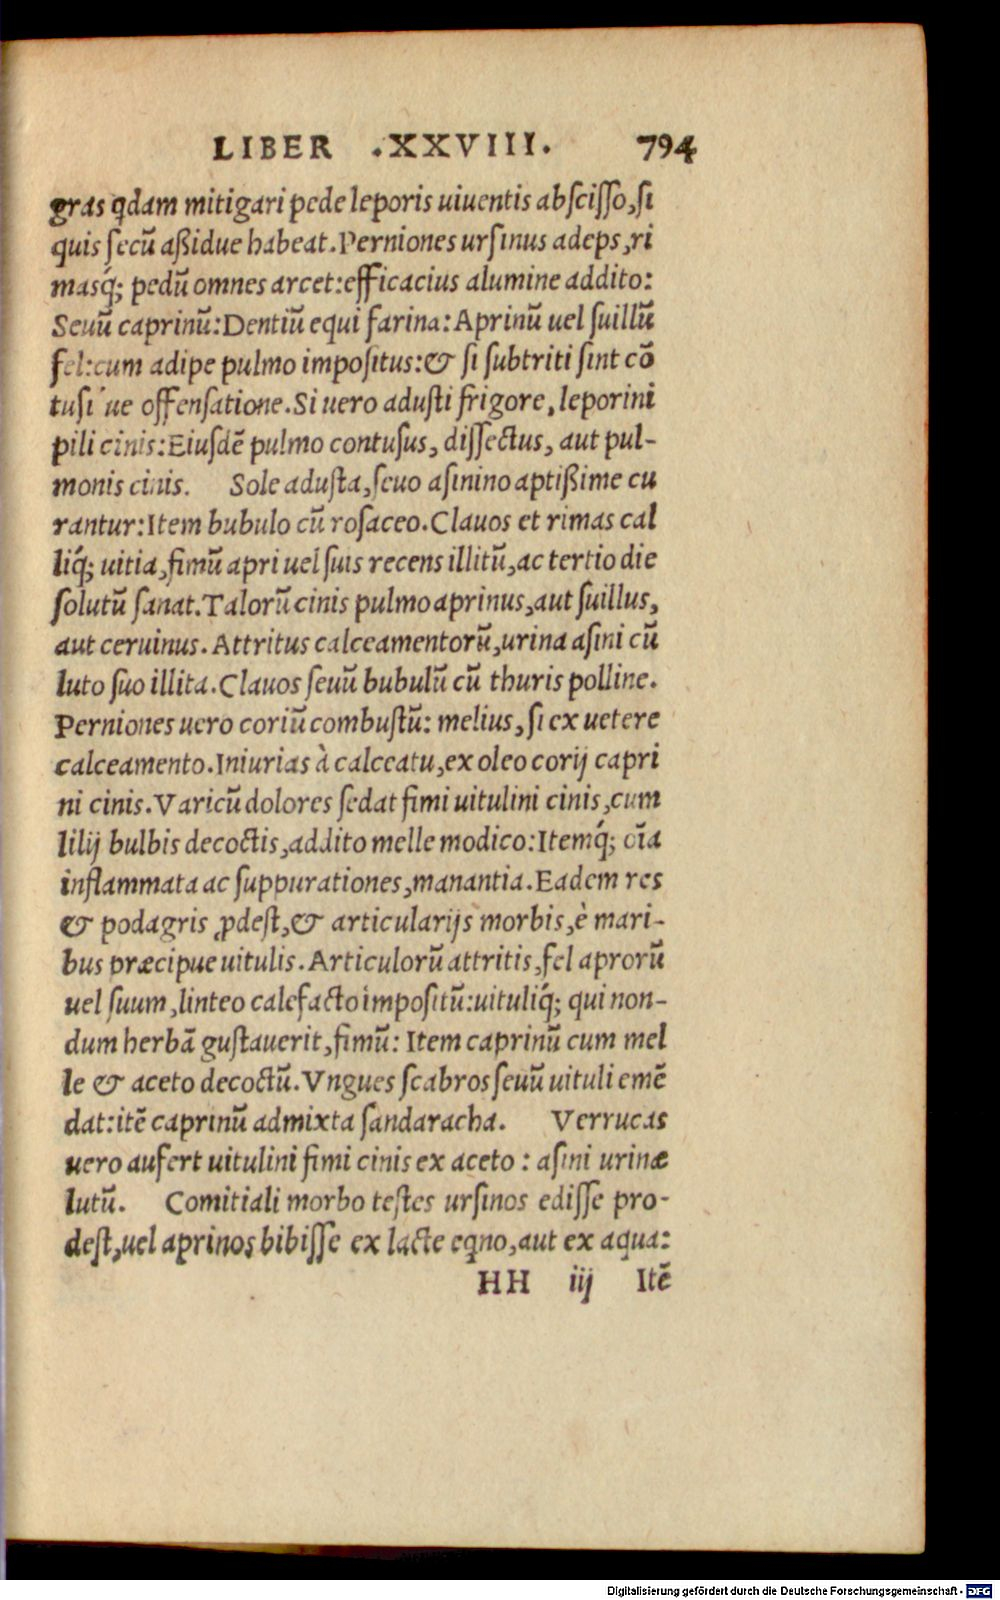 LIBER .XXVIII. 794
gras qdam mitigari pede leporis uiuentis abscisso, si
quis secū aßidue habeat. Perniones ursinus adeps, ri
masq́; pedū omnes arcet: efficacius alumine addito:
Seuū caprinū: Dentiū equi farina: Aprinū uel suillū
fel: cum adipe pulmo impositus: & si subtriti sint cō
tusi ue offensatione. Si uero adusti frigore, leporini
pili cinis: Eiusdē pulmo contusus, dissectus, aut pul-
monis cinis. Sole adusta, seuo asinino aptißime cu
rantur: Item bubulo cū rosaceo. Clauos et rimas cal
liq́; uitia, fimū apri uel suis recens illitū, ac tertio die
solutū sanat. Talorū cinis pulmo aprinus, aut suillus,
aut ceruinus. Attritus calceamentorū, urina asini cū
luto suo illita. Clauos seuū bubulū cū thuris polline.
Perniones uero coriū combustū: melius, si ex uetere
calceamento. Iniurias à calceatu, ex oleo corij capri
ni cinis. Varicū dolores sedat fimi uitulini cinis, cum
lilij bulbis decoctis, addito melle modico: Itemq́; oīa
inflammata ac suppurationes, manantia. Eadem res
& podagris ꝓdest, & articularijs morbis, è mari-
bus præcipue uitulis. Articulorū attritis, fel aprorū
uel suum, linteo calefacto impositū: uituliq́; qui non-
dum herbā gustauerit, fimū: Item caprinū cum mel
le & aceto decoctū. Vngues scabros seuū uituli emē
dat: itē caprinū admixta sandaracha. Verrucas
uero aufert uitulini fimi cinis ex aceto: asini urinæ
lutū. Comitiali morbo testes ursinos edisse pro-
dest, uel aprinos bibisse ex lacte eqno, aut ex aqua:
HH iij Itē
Digitalisierung gefördert durch die Deutsche Forschungsgemeinschaft - DFG